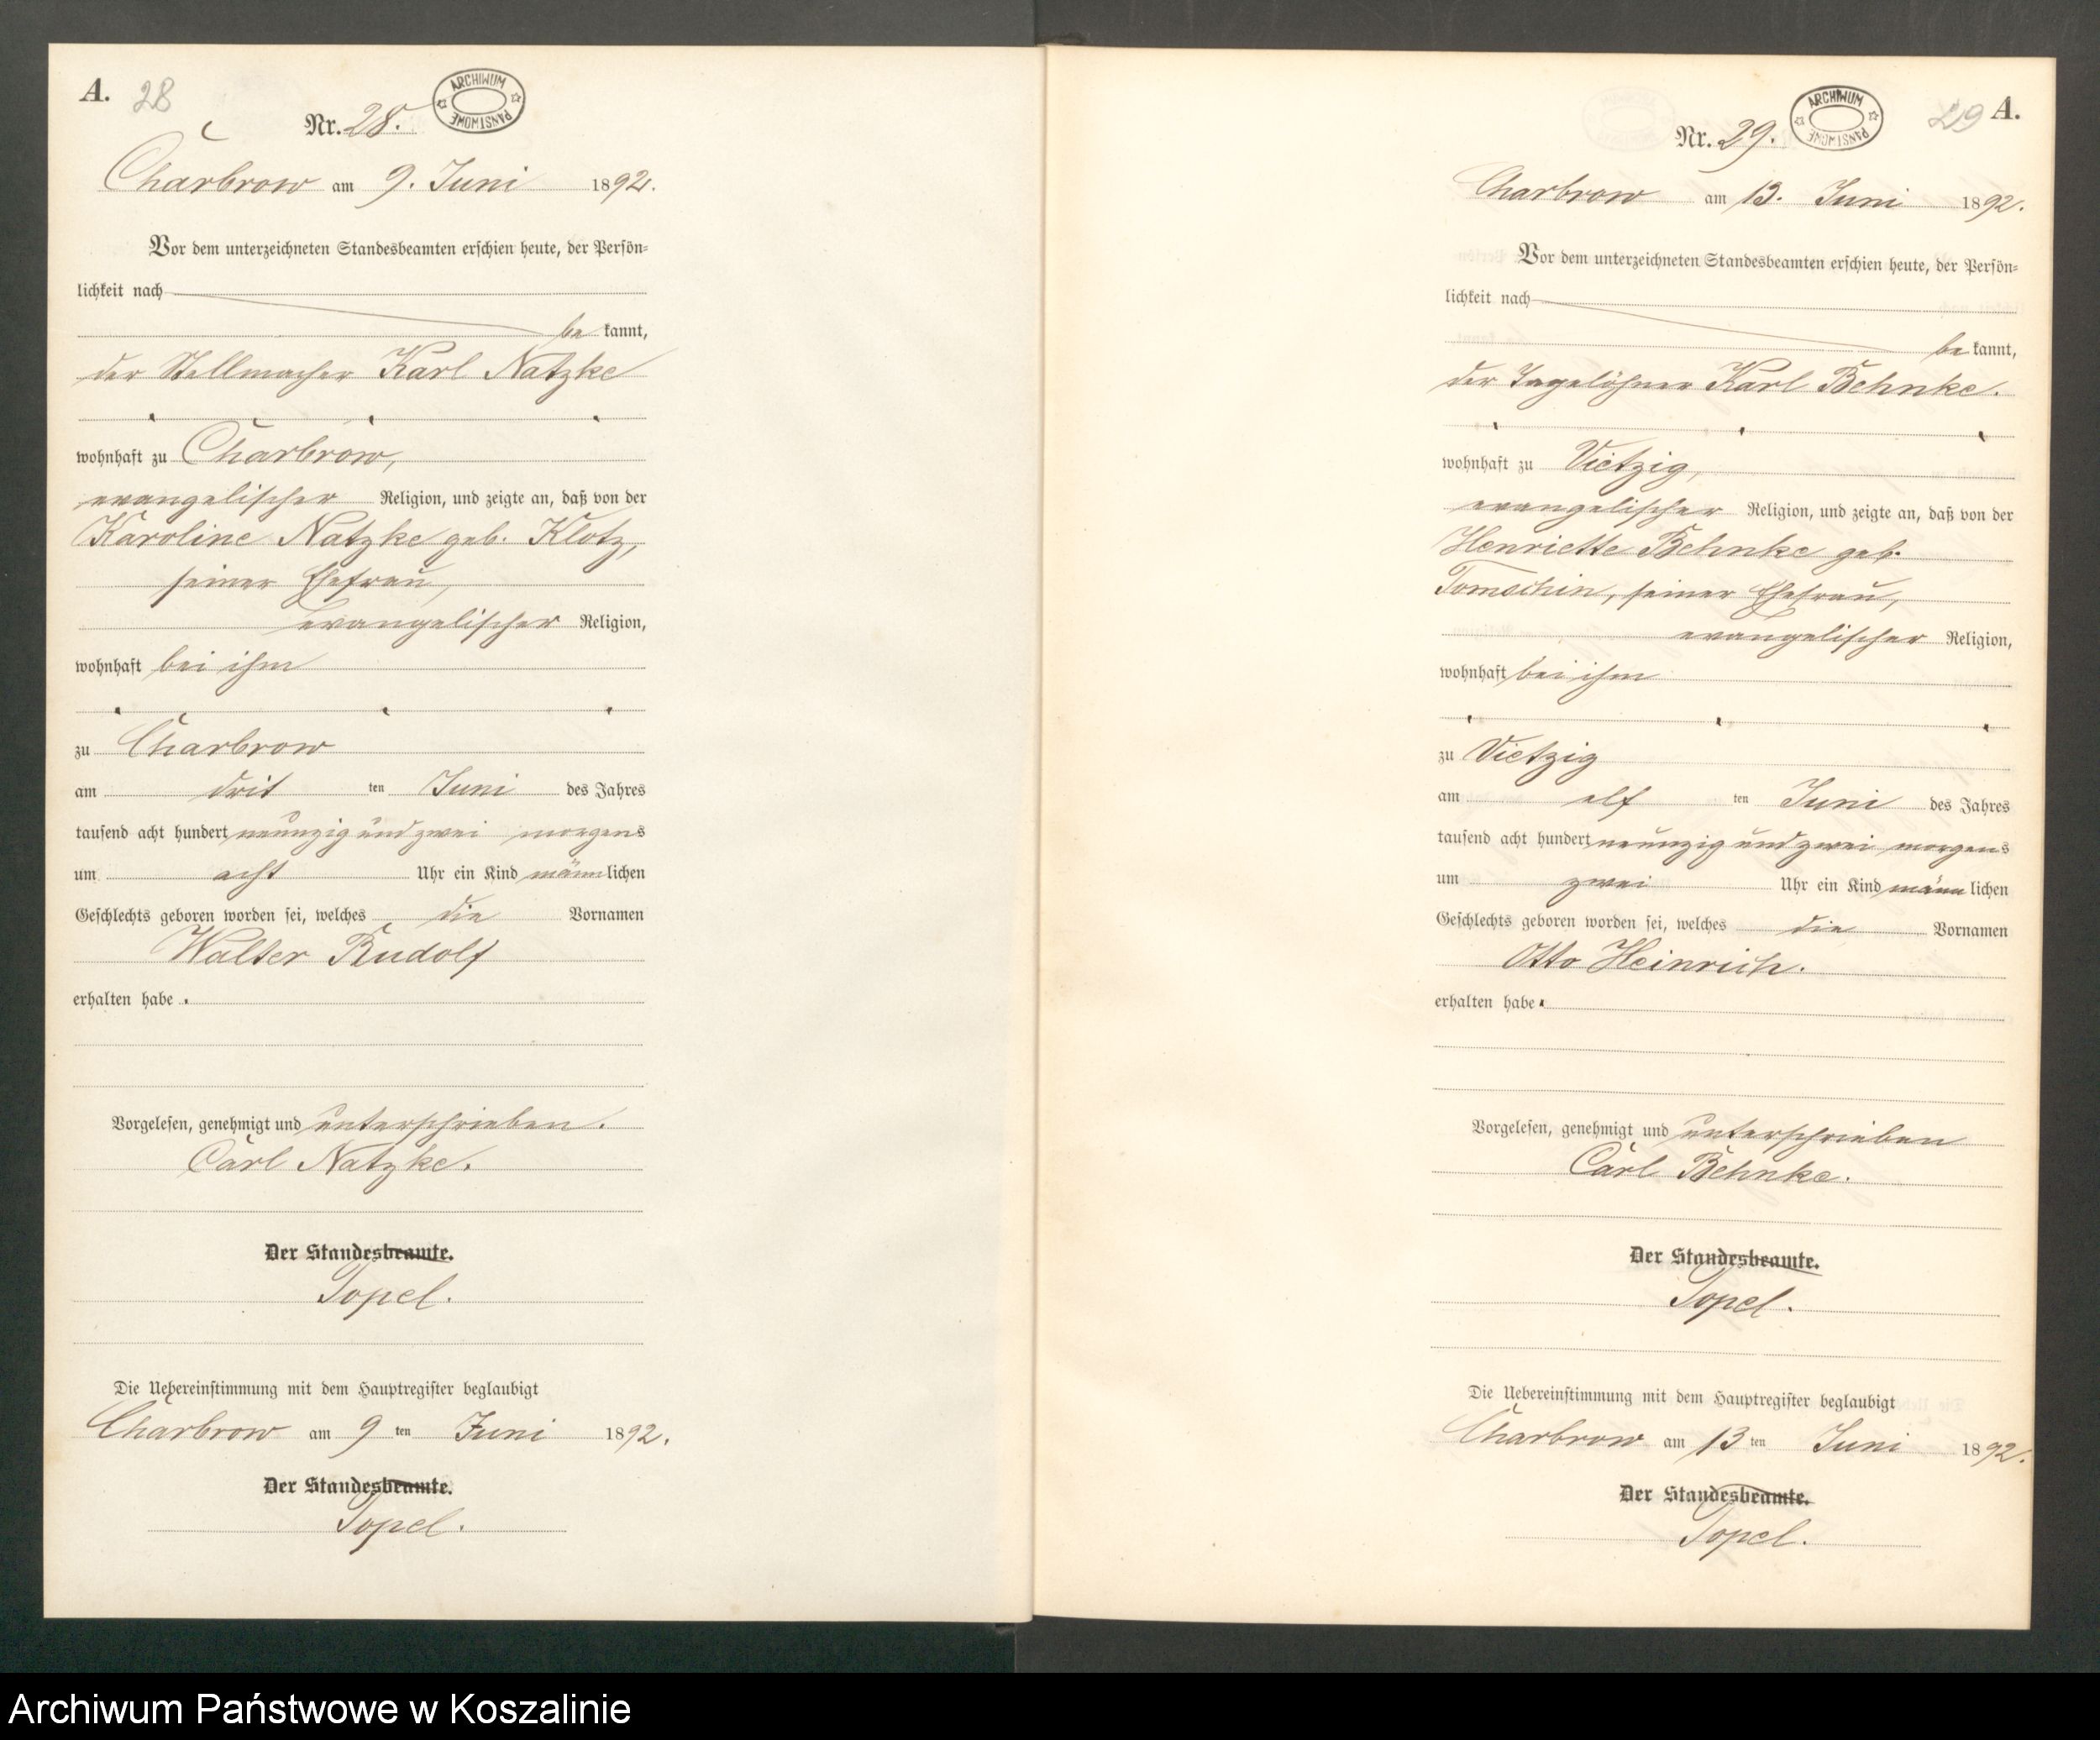 A. 28
ARCHIWUM PAŃSTWOWE
Nr. 28.
Charbrow am 9. Juni 1892.
Vor dem unterzeichneten Standesbeamten erschien heute, der Persön-
lichkeit nach
be kannt,
der Stellmacher Karl Natzke
wohnhaft zu Charbrow,
evangelischer Religion, und zeigte an, daß von der
Karoline Natzke geb. Klotz,
seiner Ehefrau,
evangelischer Religion,
wohnhaft bei ihm
zu Charbrow
am drit ten Juni des Jahres
tausend acht hundert neunzig und zwei morgens
um acht Uhr ein Kind männlichen
Geschlechts geboren worden sei, welches die Vornamen
Walter Rudolf
erhalten habe.
Vorgelesen, genehmigt und unterschrieben.
Carl Natzke.
Der Standesbeamte.
Topel.
Die Uebereinstimmung mit dem Hauptregister beglaubigt
Charbrow am 9 ten Juni 1892.
Der Standesbeamte.
Topel.
29 A.
ARCHIWUM PAŃSTWOWE
Nr. 29.
Charbrow am 13. Juni 1892.
Vor dem unterzeichneten Standesbeamten erschien heute, der Persön-
lichkeit nach
be kannt,
der Tagelöhner Karl Behnke.
wohnhaft zu Vietzig,
evangelischer Religion, und zeigte an, daß von der
Henriette Behnke geb.
Tomschin, seiner Ehefrau,
evangelischer Religion,
wohnhaft bei ihm
zu Vietzig
am elf ten Juni des Jahres
tausend acht hundert neunzig und zwei morgens
um zwei Uhr ein Kind männlichen
Geschlechts geboren worden sei, welches die Vornamen
Otto Heinrich.
erhalten habe.
Vorgelesen, genehmigt und unterschrieben
Carl Behnke.
Der Standesbeamte.
Topel.
Die Uebereinstimmung mit dem Hauptregister beglaubigt
Charbrow am 13 ten Juni 1892.
Der Standesbeamte.
Topel.
Archiwum Państwowe w Koszalinie